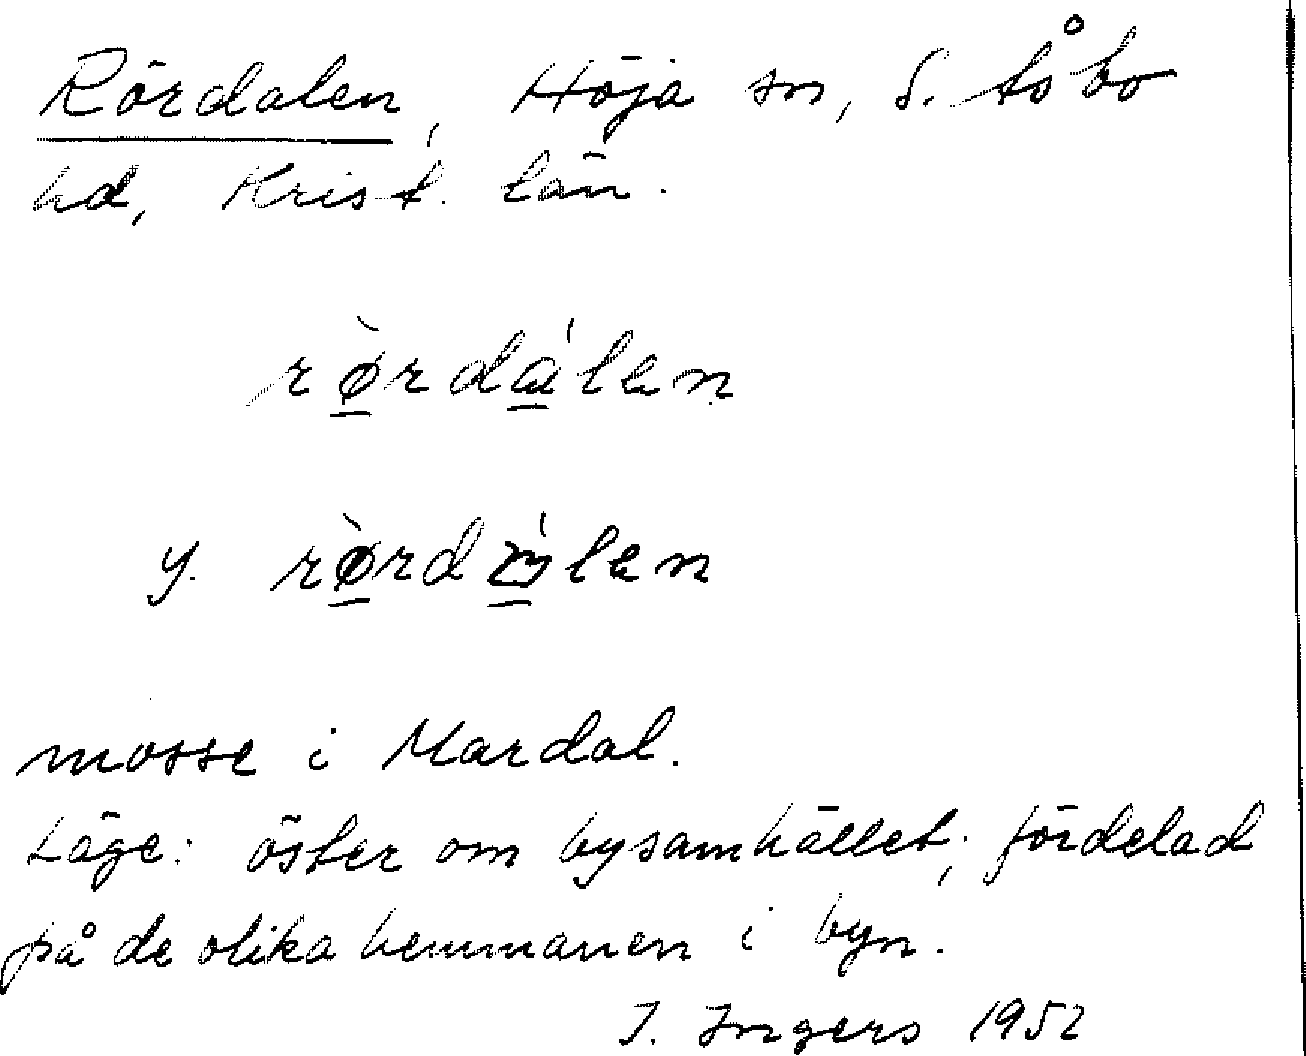 Rördalen, Höja sn, S. Åsbo
hd, Krist. län.
rø̀rdálen
y. rø̀rdálen
mosse i Mardal.
Läge: öster om bysamhället; fördelad
på de olika hemmanen i byn.
I. Ingers 1952